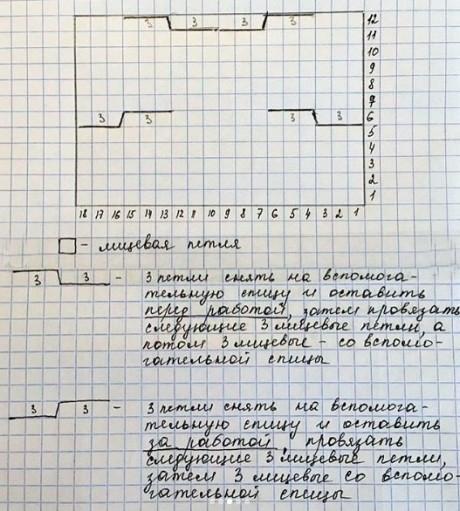 3 3 3 3 12
11
10
9
8
7
3 3 3 3 6
5
4
3
2
1
18 17 16 15 14 13 12 8 10 9 8 7 6 5 4 3 2 1
- лицевая петля
3 3 - 3 петли снять на вспомога-
тельную спицу и оставить
перед работой, затем провязать
следующие 3 лицевые петли, а
потом 3 лицевые - со вспомо-
гательной спицы
3 3 - 3 петли снять на вспомога-
тельную спицу и оставить
за работой, провязать
следующие 3 лицевые петли,
затем 3 лицевые со вспомо-
гательной спицы